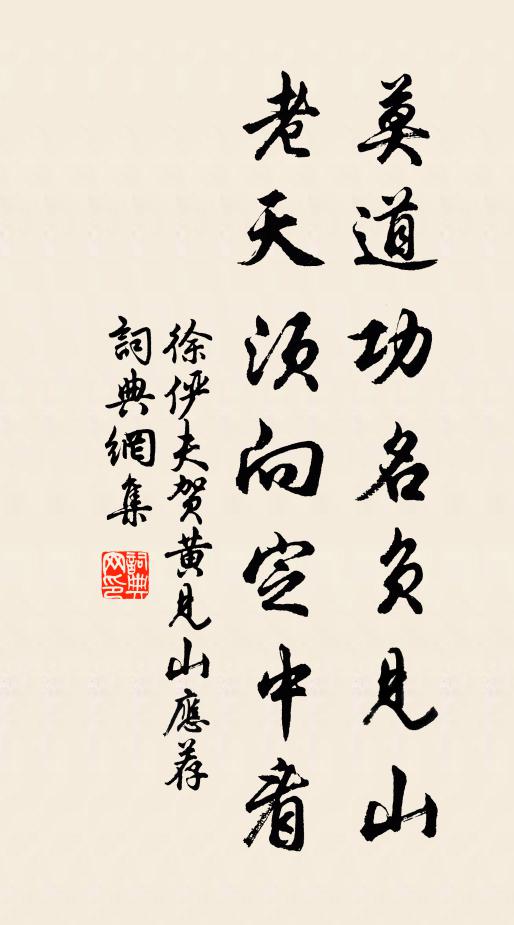 莫道功名負見山
老天須向定中看
徐俨夫賀黃見山應荐
詞典網集
詞典網印